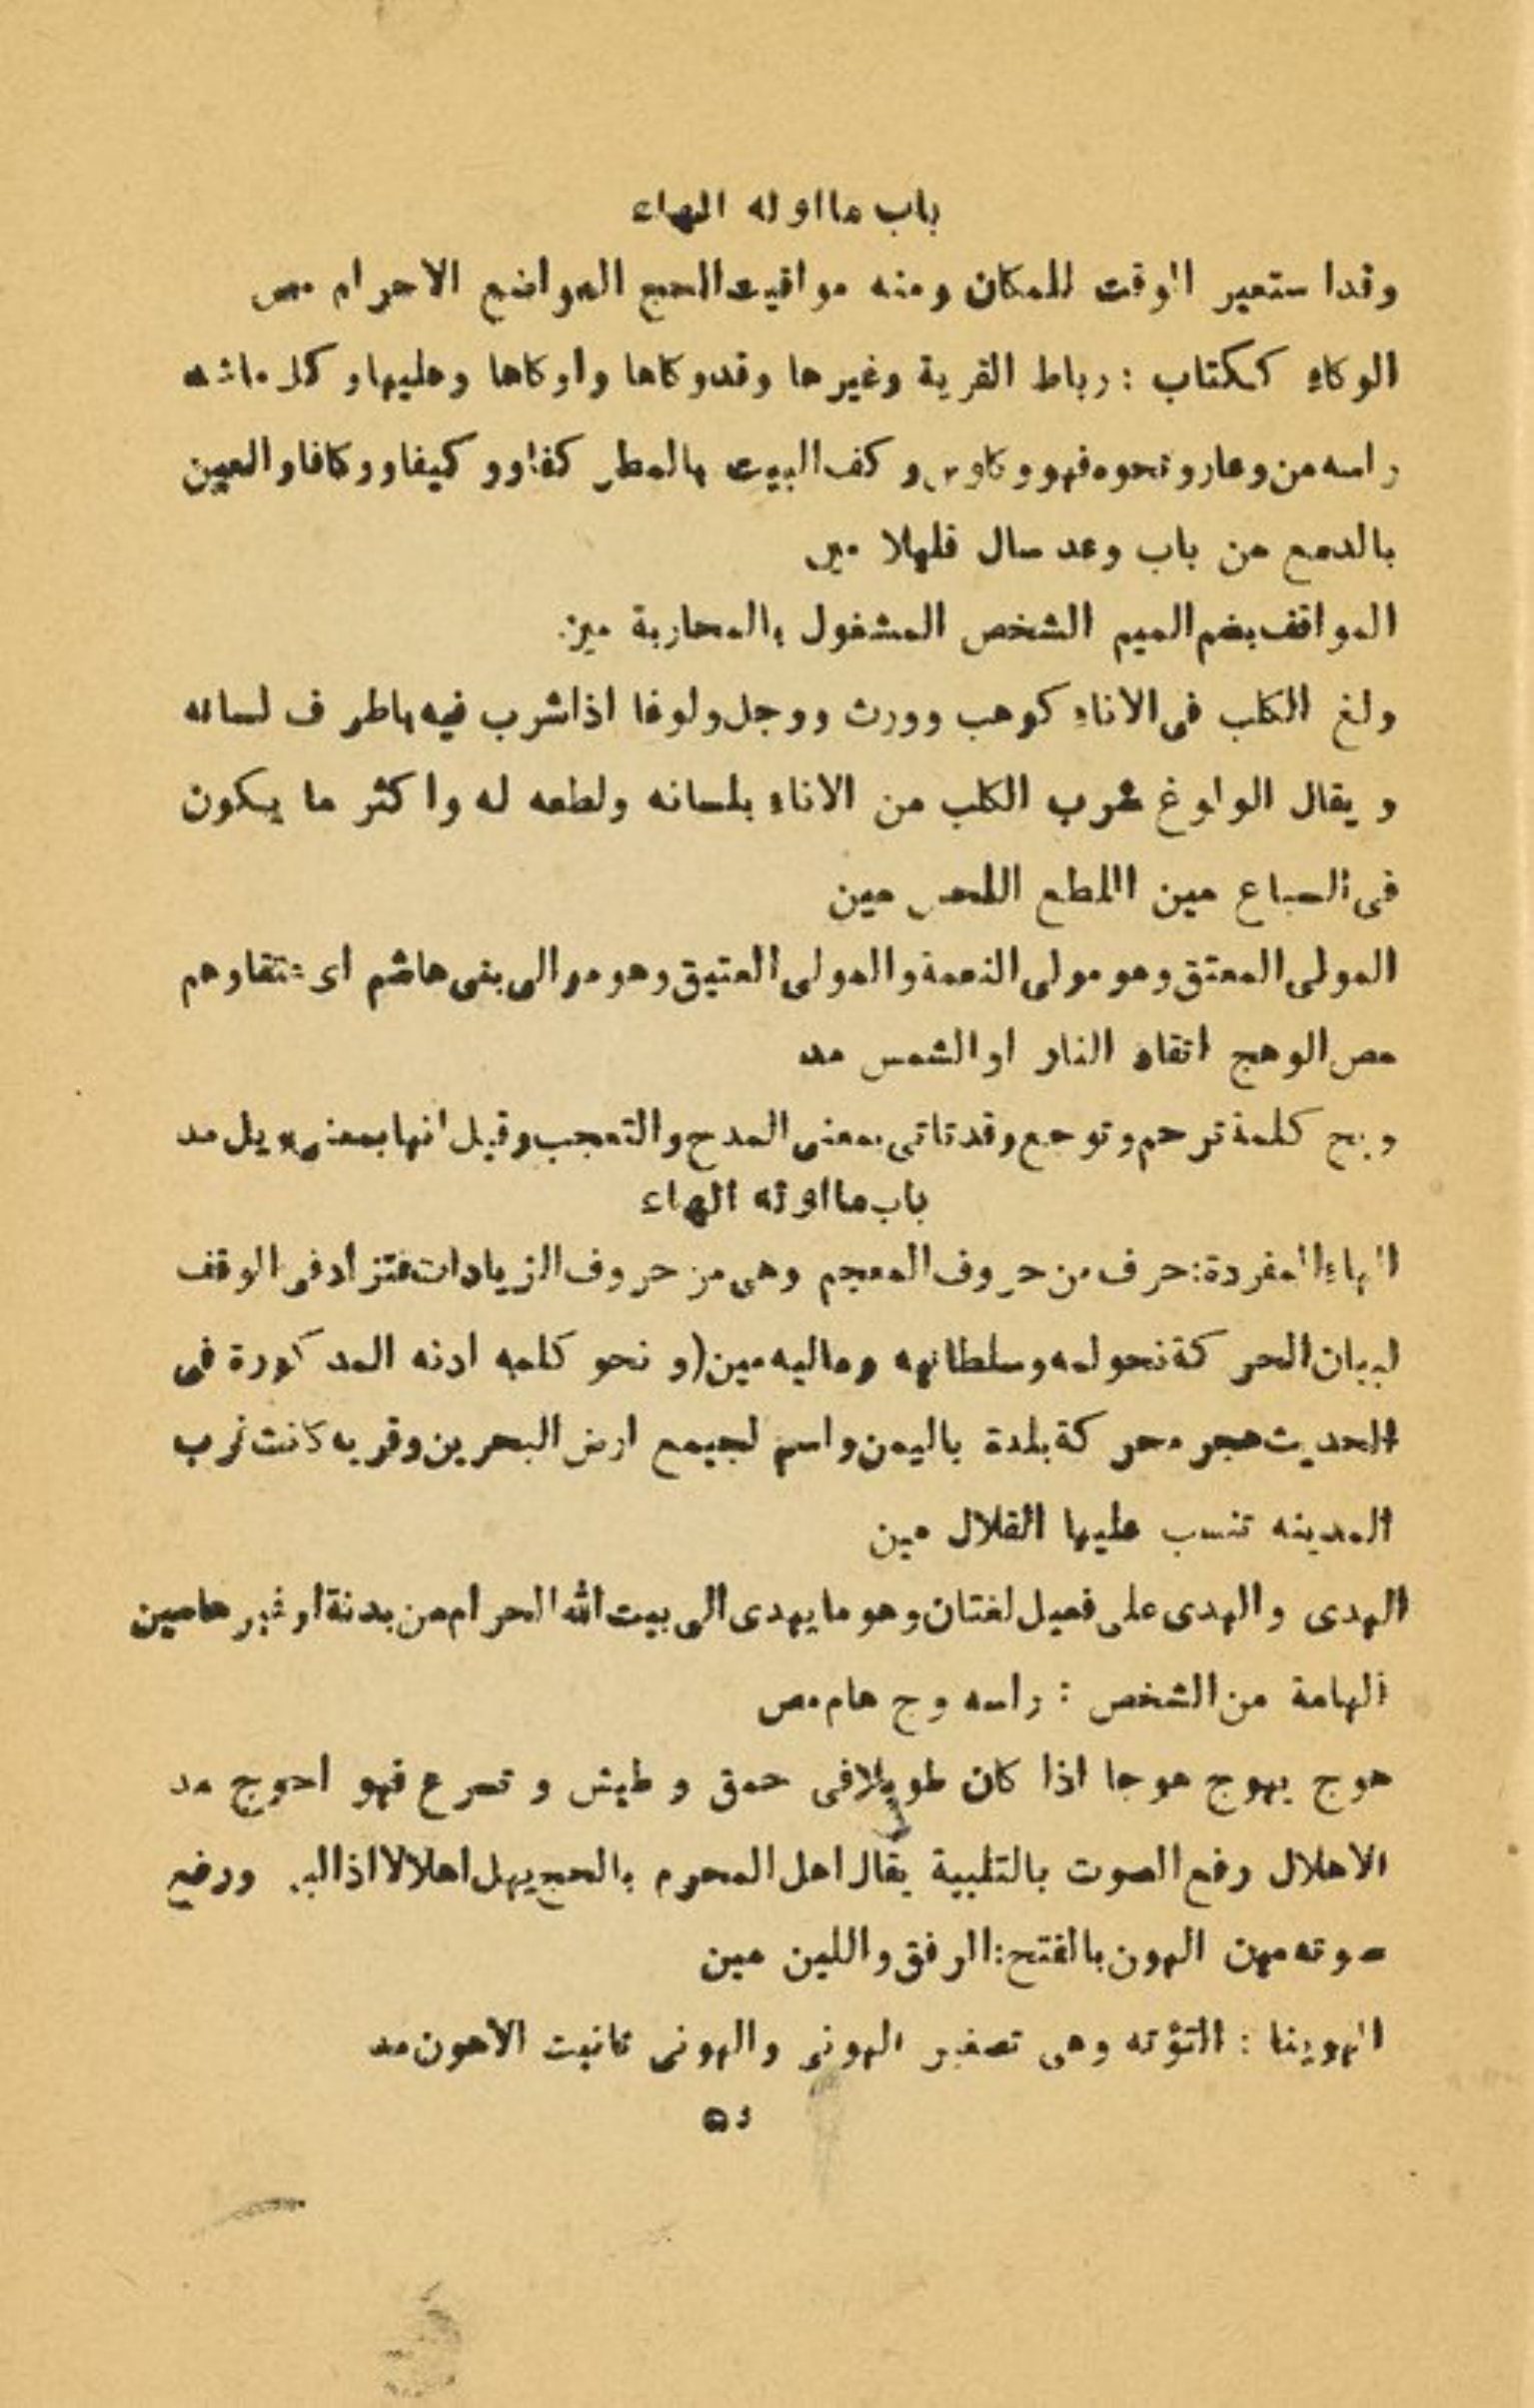 باب ما اوله الهاء
وقد استعير الوقت للمكان ومنه مواقيت الحج المواضع الاحرام مص
الوكاء ككتاب : رباط القربة وغيرها وقد وكاها واوكاها وعليها وكل ما شد
راسه من وعاء ونحوه فهو وكاء و وكف البيت بالمطر كفا ووكيفا ووكافا والعين
بالدمع من باب وعد سال قليلا مين
المواقف بضم الميم الشخص المشغول بالمحاربة مين
ولغ الكلب في الاناء كوهب وورث ووجل ولوغا اذا شرب فيه باطراف لسانه
ويقال الولوغ شرب الكلب من الاناء بلسانه ولطعه له واكثر ما يكون
في السباع مين اللطع اللحس مين
المولى المعتق وهو مولى النعمة والمولى العتيق وهو موالى بنى هاشم اى عتقاوهم
مص الوهج اتقاد النار او الشمس مد
ويح كلمة ترحم وتوجع وقد تاتى بمعنى المدح والتعجب وقيل انها بمعنى ويل مد
باب ما اوله الهاء
الهاء المفردة : حرف من حروف المعجم وهى من حروف الزيادات فتزاد فى الوقف
لبيان الحركة نحو لمه وسلطانيه وماليه مين (و نحو كلمه ادنه المذكورة فى
الحديث هجر محركة بلدة باليمن واسم لجميع ارض البحرين وقريه كانت قرب
المدينه تنسب عليها القلال مين
الهدى والهدى على فعيل لغتان وهو ما يهدى الى بيت الله الحرام من بدنة او غيرها مين
الهامة من الشخص : راسه وج هام مص
هوج يهوج هوجا اذا كان طويلا فى حمق و طيش و تسرع فهو احوج مد
الاهلال رفع الصوت بالتلبية يقال اهل المحرم بالحج يهل اهلالا اذا لبى ورفع
صوته مهن الهون بالفتح : الرفق واللين مين
الهوينا : التؤته وهى تصغير الهونى والهونى تانيت الاهون مد